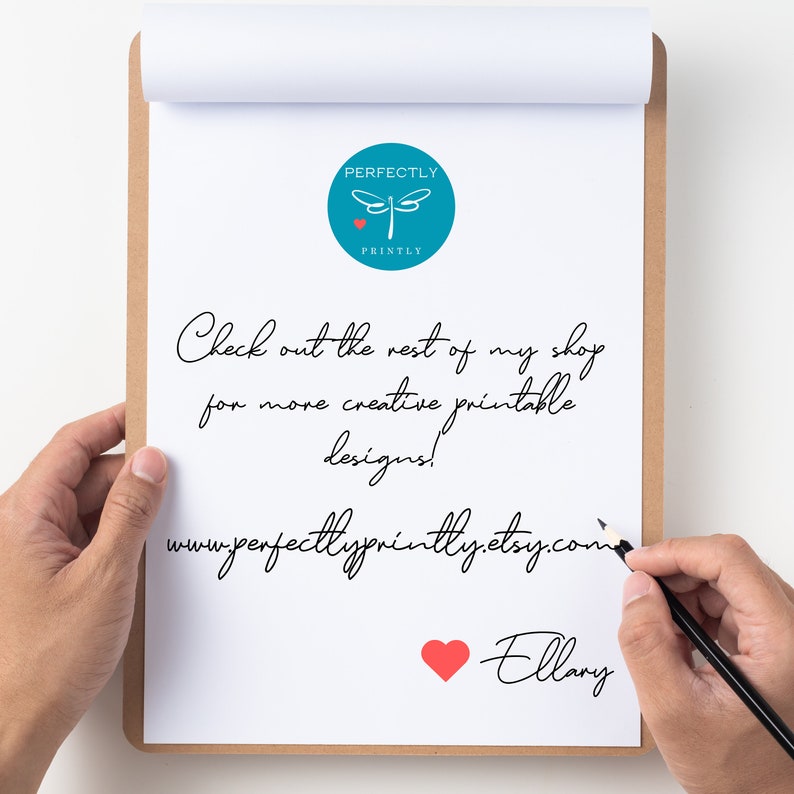 PERFECTLY
PRINTLY
Check out the rest of my shop
for more creative printable
designs!
www.perfectlyprintly.etsy.com
Ellary